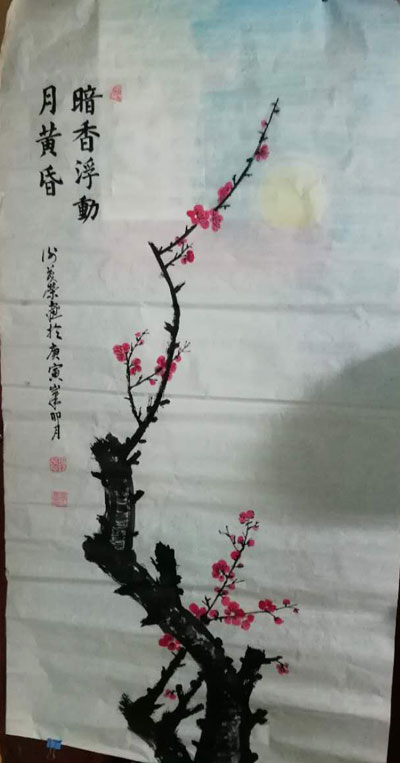 暗香浮動
月黄昏
榮畫於庚寅年卯月